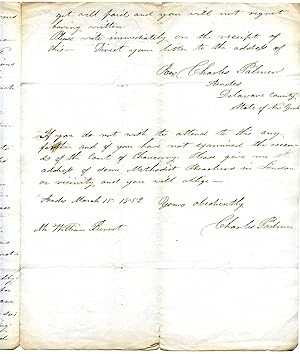 get well paid and you will not regret
having written.
Please write immediately on the receipt of
this— Direct your letter to the address of
Rev. Charles Palmer
Andes
Delaware County
State of New York
If you do not wish to attend to this any
farther and if you have not examined the recor-
ds of the Court of Chancery Please give me
address of some Methodist Preachers in London
or vicinity and you will oblige—
Andes March 15 1852 Yours obediently
Mr William Charles Palmer